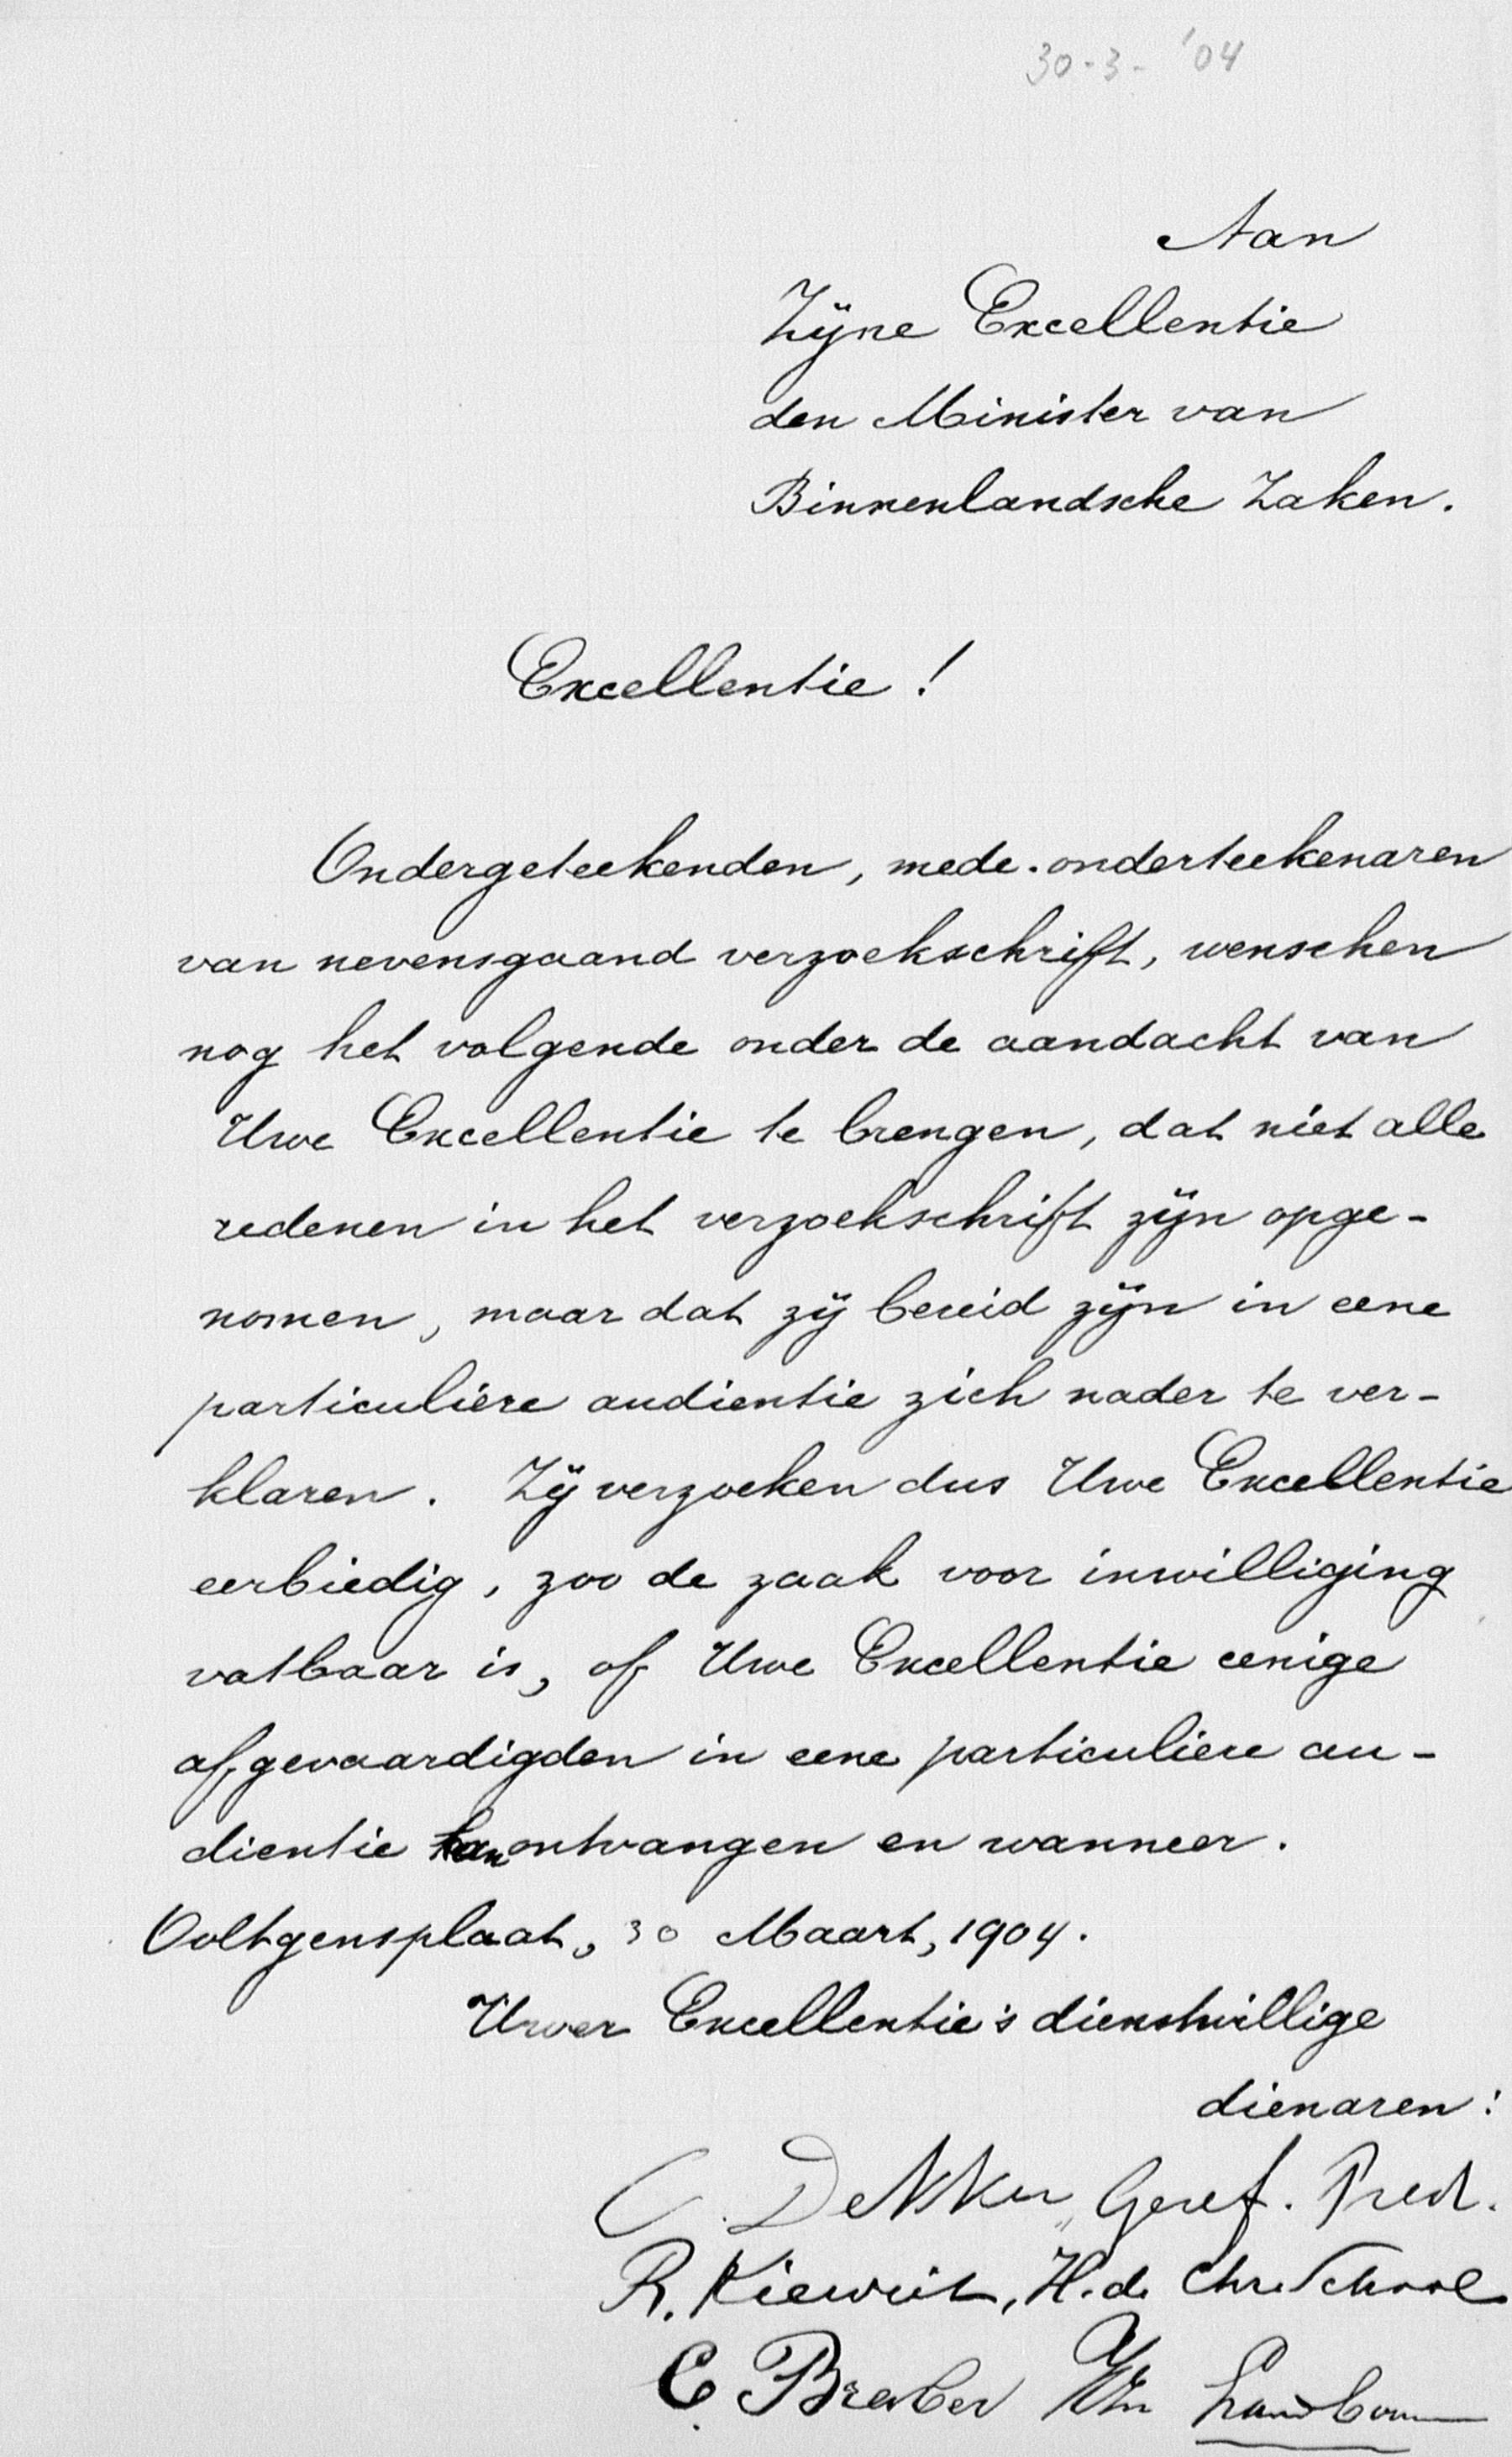 30-3-'04
Aan
Zijne Excellentie
den Minister van
Binnenlandsche Zaken.
Excellentie!
Ondergeteekenden, mede-onderteekenaren
van nevensgaand verzoekschrift, wenschen
nog het volgende onder de aandacht van
Uwe Excellentie te brengen, dat niet alle
redenen in het verzoekschrift zijn opge-
nomen, maar dat zij bereid zijn in eene
particuliere audientie zich nader te ver-
klaren. Zij verzoeken dus Uwe Excellentie
eerbiedig, zoo de zaak voor inwilliging
vatbaar is, of Uwe Excellentie eenige
afgevaardigden in eene particuliere au-
dientie kan ontvangen en wanneer.
Ooltgensplaat, 30 Maart, 1904.
Uwer Excellentie's dienstwillige
dienaren:
C. Dekker, Geref. Pred.
R. Kiewiet, H.d. Chr. School
C Breeber